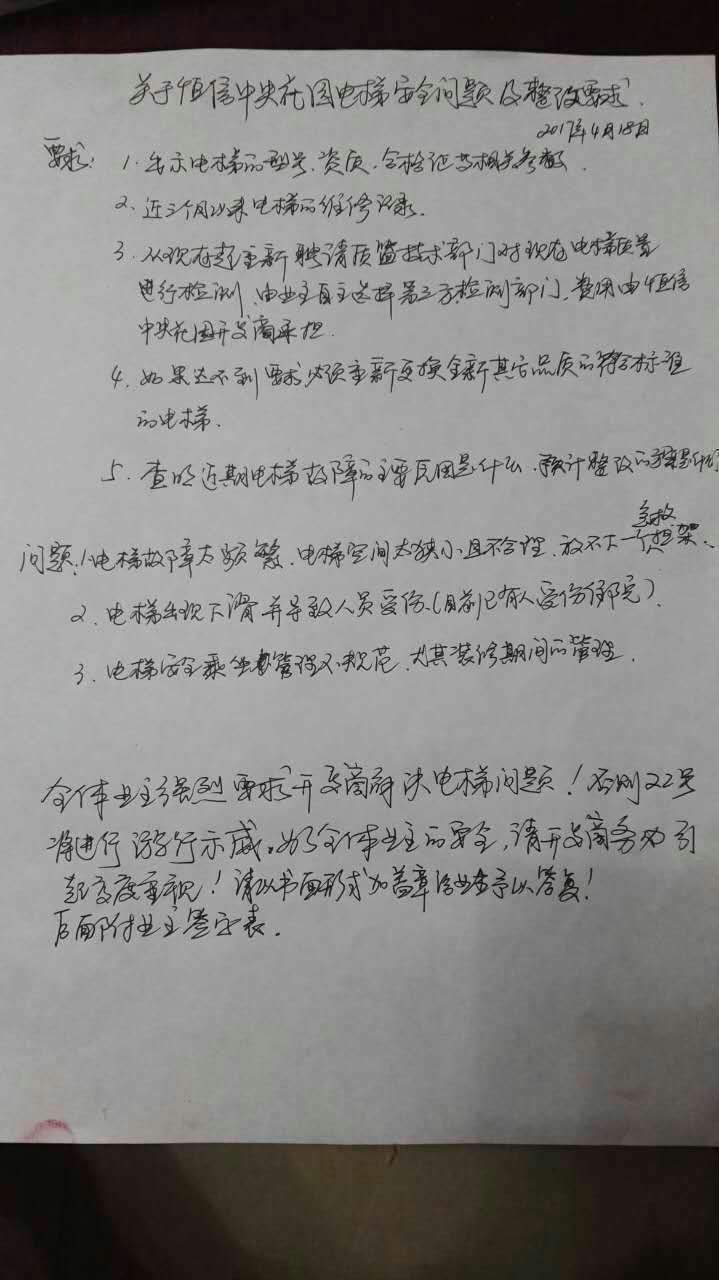 关于恒信中央花园电梯安全问题及整改要求.
2017年4月18日
要求: 1. 出示电梯的型号、资质、合格证书相关参数.
2. 近三个月以来电梯的维修记录.
3. 从现在起重新聘请质监技术部门对现在电梯质量
进行检测,由业主自主选择第三方检测部门,费用由恒信
中央花园开发商承担.
4. 如果达不到要求,必须重新更换全新其它品质的符合标准
的电梯.
5. 查明近期电梯故障的主要原因是什么,预计整改的方案是什
问题: 1.电梯故障太频繁、电梯空间太狭小且不合理,放不下一个担架、
急救
2. 电梯出现下滑并导致人员受伤.(目前已有人受伤住院).
3. 电梯安全乘坐管理不规范,尤其装修期间的管理.
全体业主强烈要求开发商解决电梯问题!否则22号
将进行游行示威。为了全体业主的安全,请开发商务必引
起高度重视!请以书面形式加盖章给业主予以答复!
后面附业主签字表.